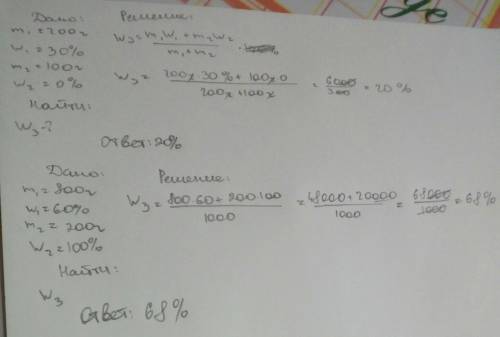 Дано:
m₁=200г
w₁=30%
m₂=100г
w₂=0%
Найти:
w₃-?
Решение:
w₃=(m₁w₁+m₂w₂)/(m₁+m₂)
w₃=(200г·30%+100г·0)/(200г+100г)=6000/300=20%
Ответ:20%
Дано:
m₁=800г
w₁=60%
m₂=200г
w₂=100%
Найти:
w₃
Решение:
w₃=(800·60+200·100)/1000=(48000+20000)/1000=68000/1000=68%
Ответ: 68%